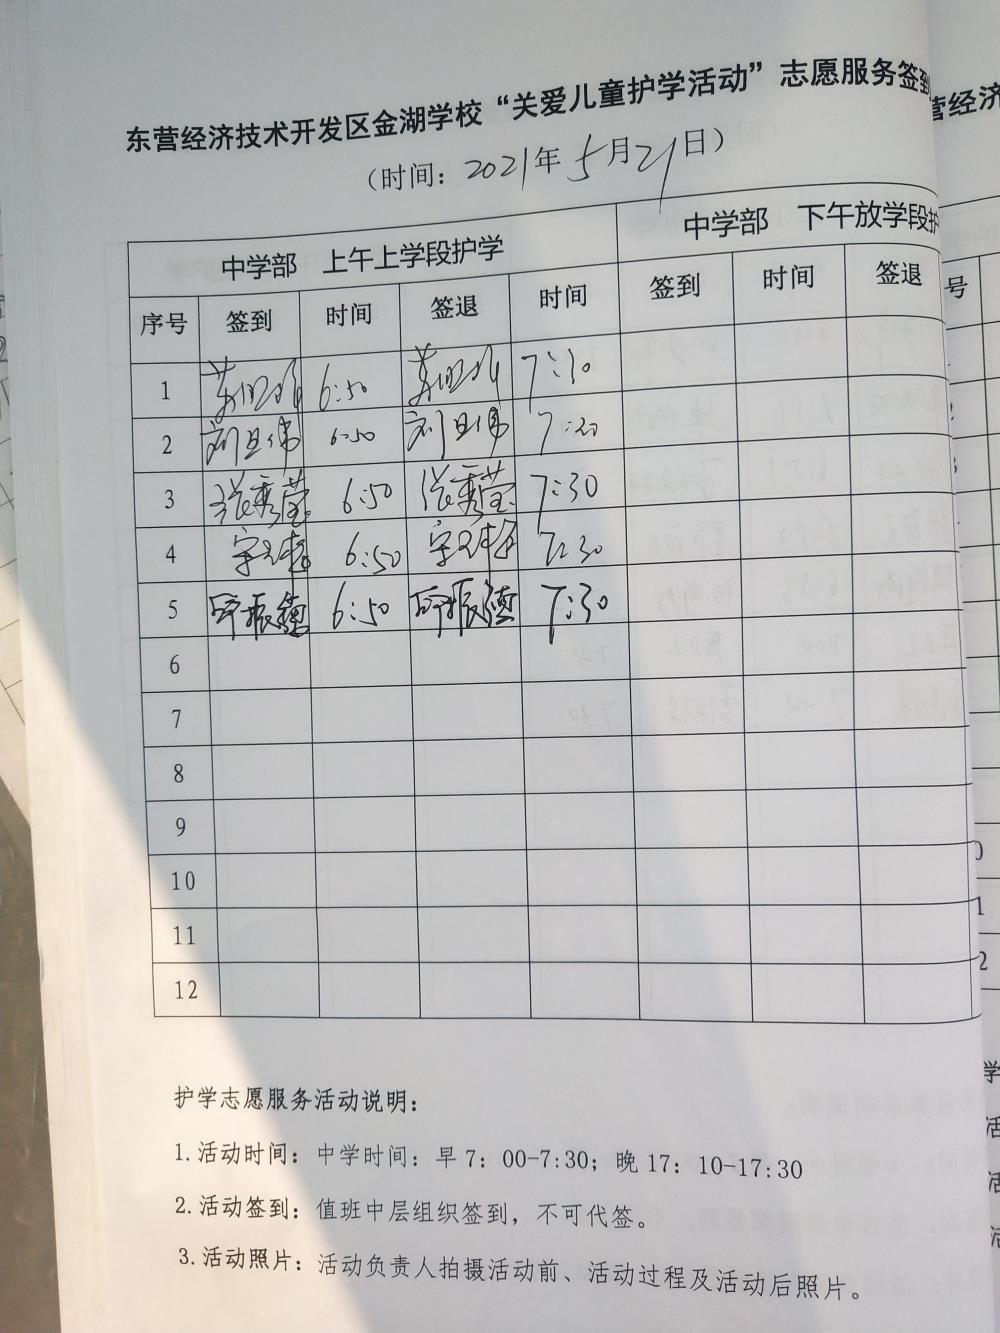 东营经济技术开发区金湖学校“关爱儿童护学活动”志愿服务签到
（时间：2021年5月21日）
中学部 上午上学段护学 中学部 下午放学段护
序号 签到 时间 签退 时间 签到 时间 签退
1 6:50 7:30
2 刘卫伟 6:50 刘卫伟 7:20
3 张秀莹 6:50 张秀莹 7:30
4 6:50 7:30
5 振德 6:50 振德 7:30
6
7
8
9
10
11
12
护学志愿服务活动说明：
1.活动时间：中学时间：早7：00-7:30；晚17：10-17:30
2.活动签到：值班中层组织签到，不可代签。
3.活动照片：活动负责人拍摄活动前、活动过程及活动后照片。
营经济
号